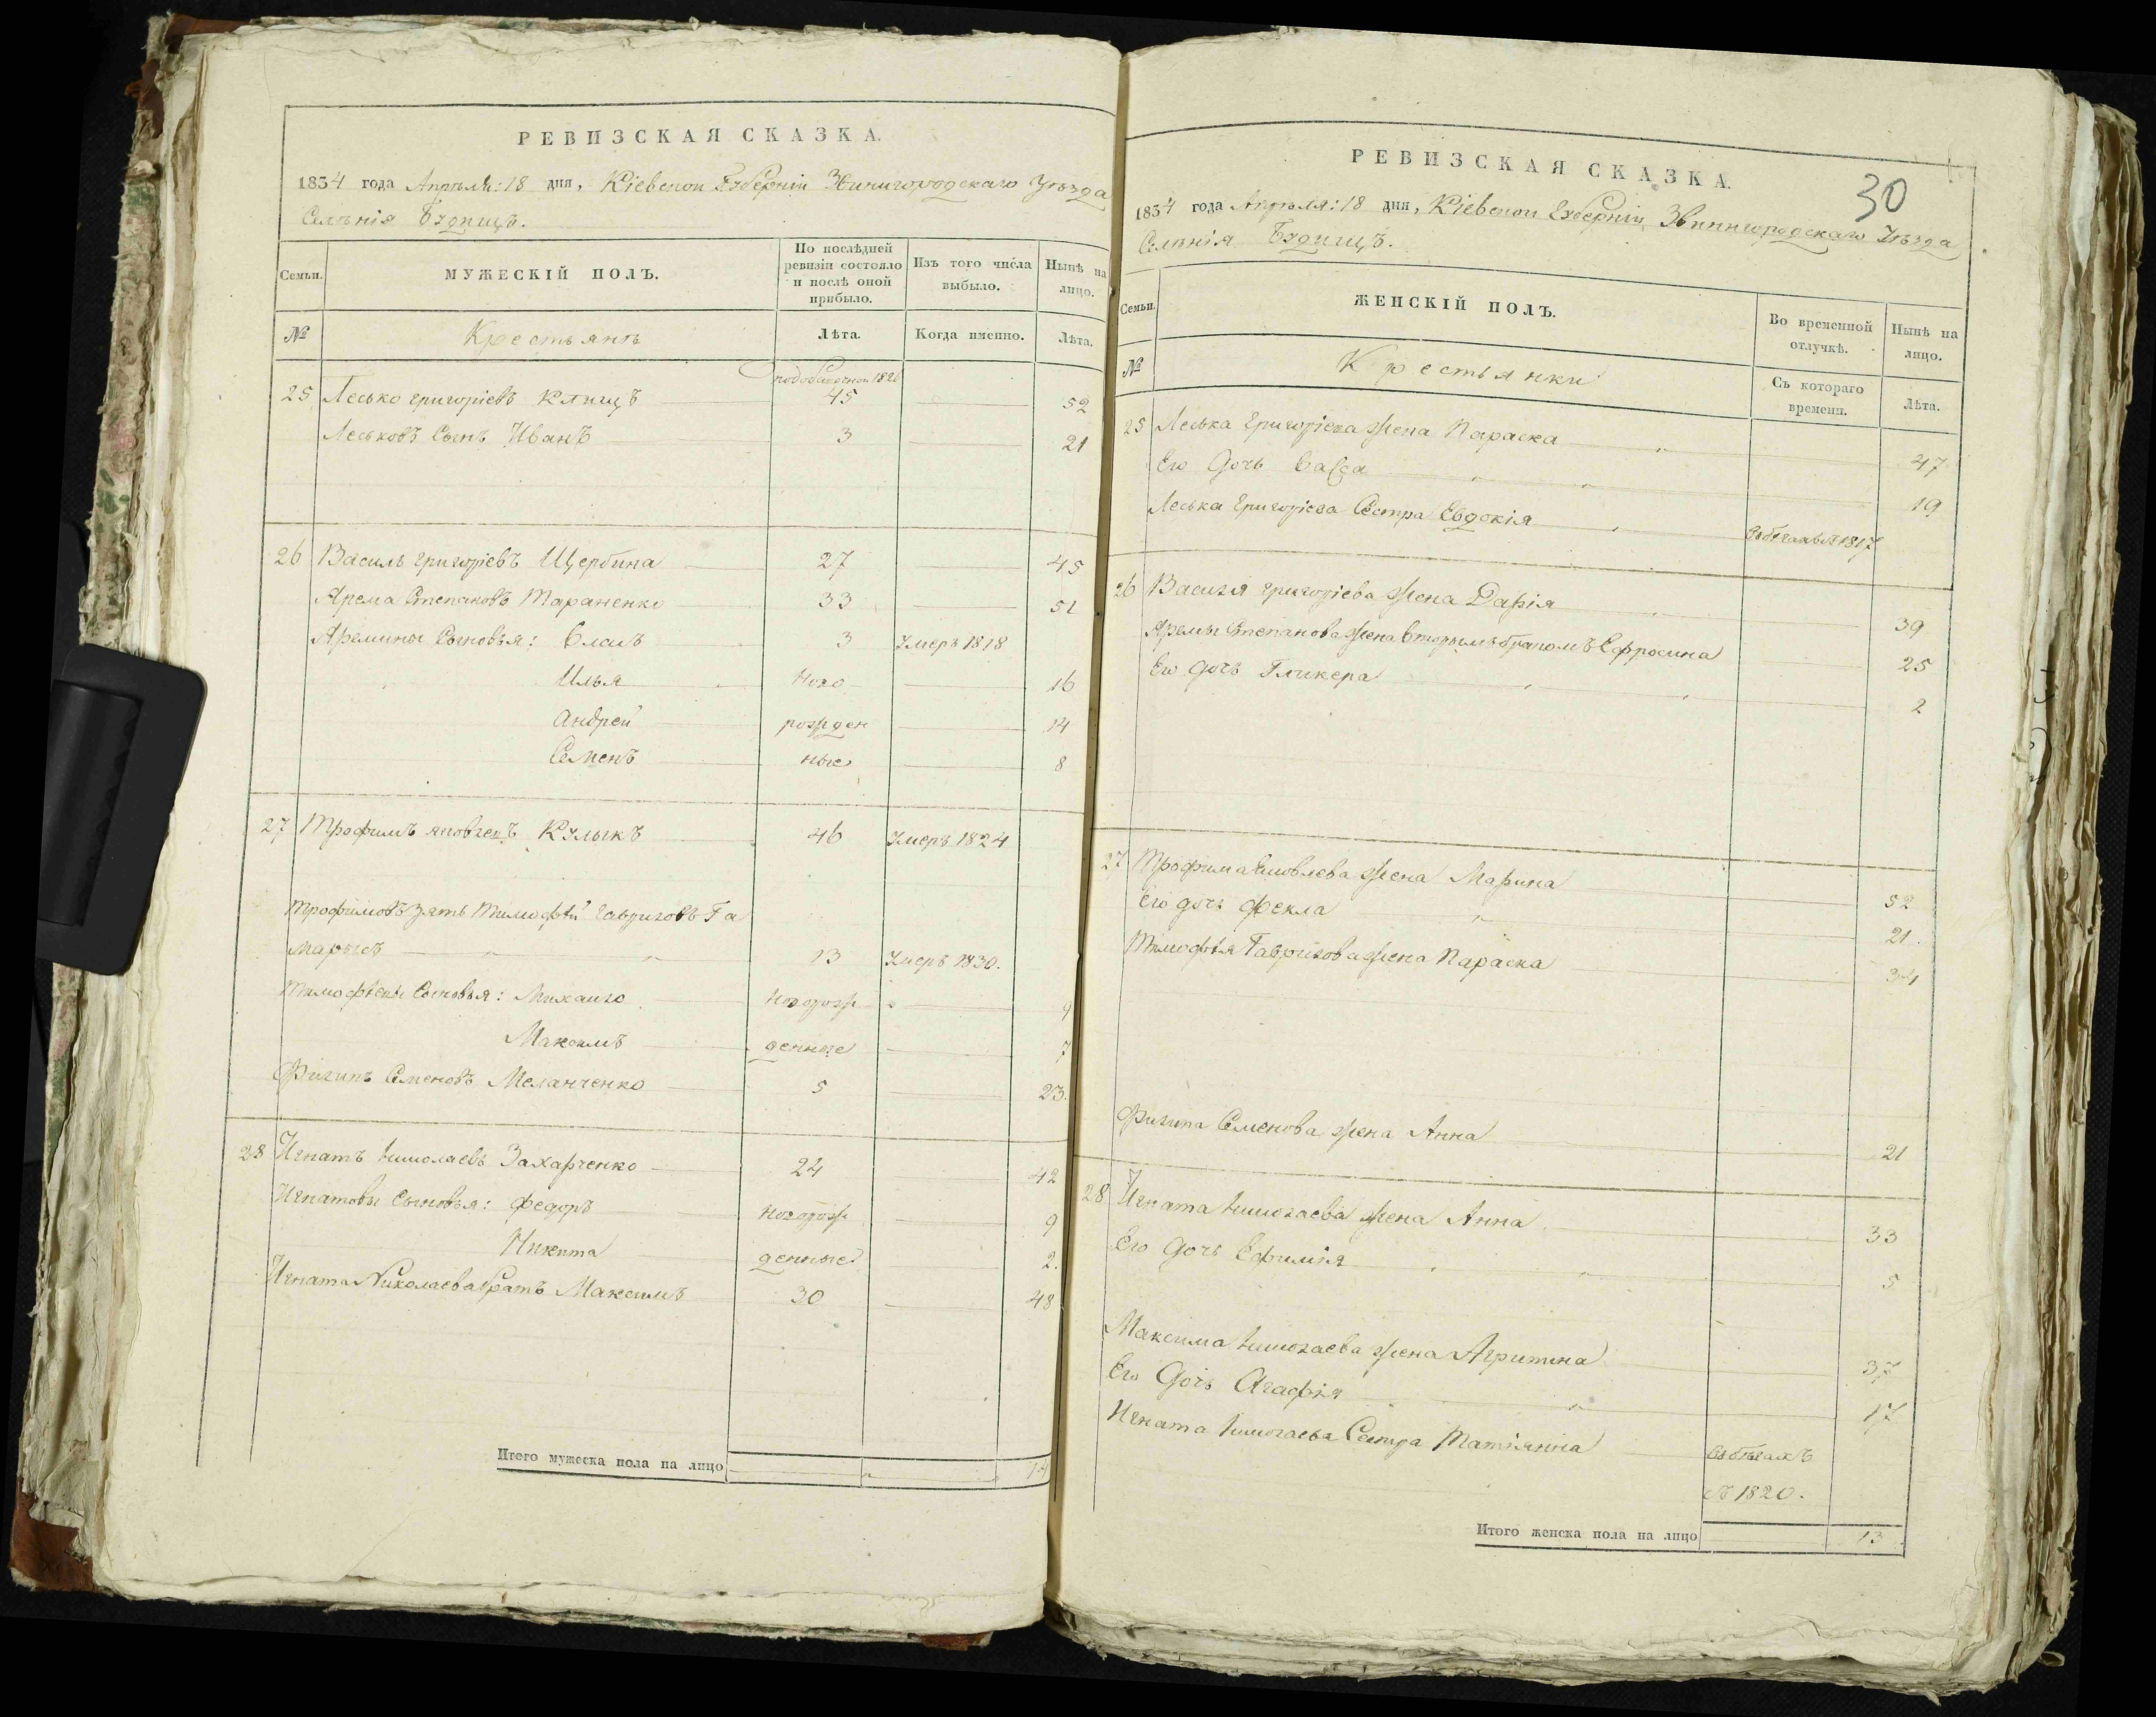 РЕВИЗСКАЯ СКАЗКА.
1834 года Апрѣля: 18 дня, Кіевской Губерніи Звинигородскаго Уѣзда
Селѣнія Будищъ.
Семьи.
МУЖЕСКІЙ ПОЛЪ.
По послѣдней ревизіи состояло и послѣ оной прибыло.
Изъ того числа выбыло.
Нынѣ на лицо.
№
Крестьянъ
Лѣта.
Когда именно.
Лѣта.
1826
25 Лесько Григоріевъ 45 52
Леськовъ Сынъ Иванъ 3 21
26 Василь Григоріевъ Щербина 27 45
Ярема Степановъ Тараненко 33 51
Яремины Сыновья: Власъ 3 Умеръ 1818
Илья Ново 16
Андрей рожден 14
Семенъ ные 8
27 Трофимъ Яковлевъ Кулыкъ 46 Умеръ 1824
Трофимовъ зять Тимофѣй Гавриловъ Га
марысъ 13 Умеръ 1830.
Тимофѣевы Сыновья: Михайло Новорож 9
Максимъ денные 7
Филипъ Семеновъ Меланченко 5 23.
28 Игнатъ Николаевъ Захарченко 24 42
Игнатовы Сыновья: Федоръ Новорож 9
Никита денные 2.
Игната Николаева братъ Максимъ 30 48
Итого мужеска пола на лицо 14
30
РЕВИЗСКАЯ СКАЗКА.
1834 года Апрѣля: 18 дня, Кіевской Губерніи, Звинигородскаго Уѣзда
Селѣнія Будищъ.
Семьи.
ЖЕНСКІЙ ПОЛЪ.
Во временной отлучкѣ.
Нынѣ на лицо.
№
Крестьянки
Съ котораго времени.
Лѣта.
25 Леська Григоріева жена Параска 47
Его Дочь Васса 19
Леська Григоріева Сестра Евдокія Въ бѣгахъ съ 1817
26 Василя Григоріева жена Дарія 39
Яремы Степанова жена Вторымъ бракомъ Ефросина 25
Его дочь Гликера 2
27 Трофима Яковлева жена Марина 52
Его дочь Фекла 21.
Тимофѣя Гаврилова жена Параска 34
Филипа Семенова жена Анна 21
28 Игната Николаева жена Анна 33
Его Дочь Ефимія 5
Максима Николаева жена Агрипина 37
Его Дочь Агафія 17
Игната Николаева Сестра Татіянна Въ бѣгахъ
съ 1820.
Итого женска пола на лицо 13